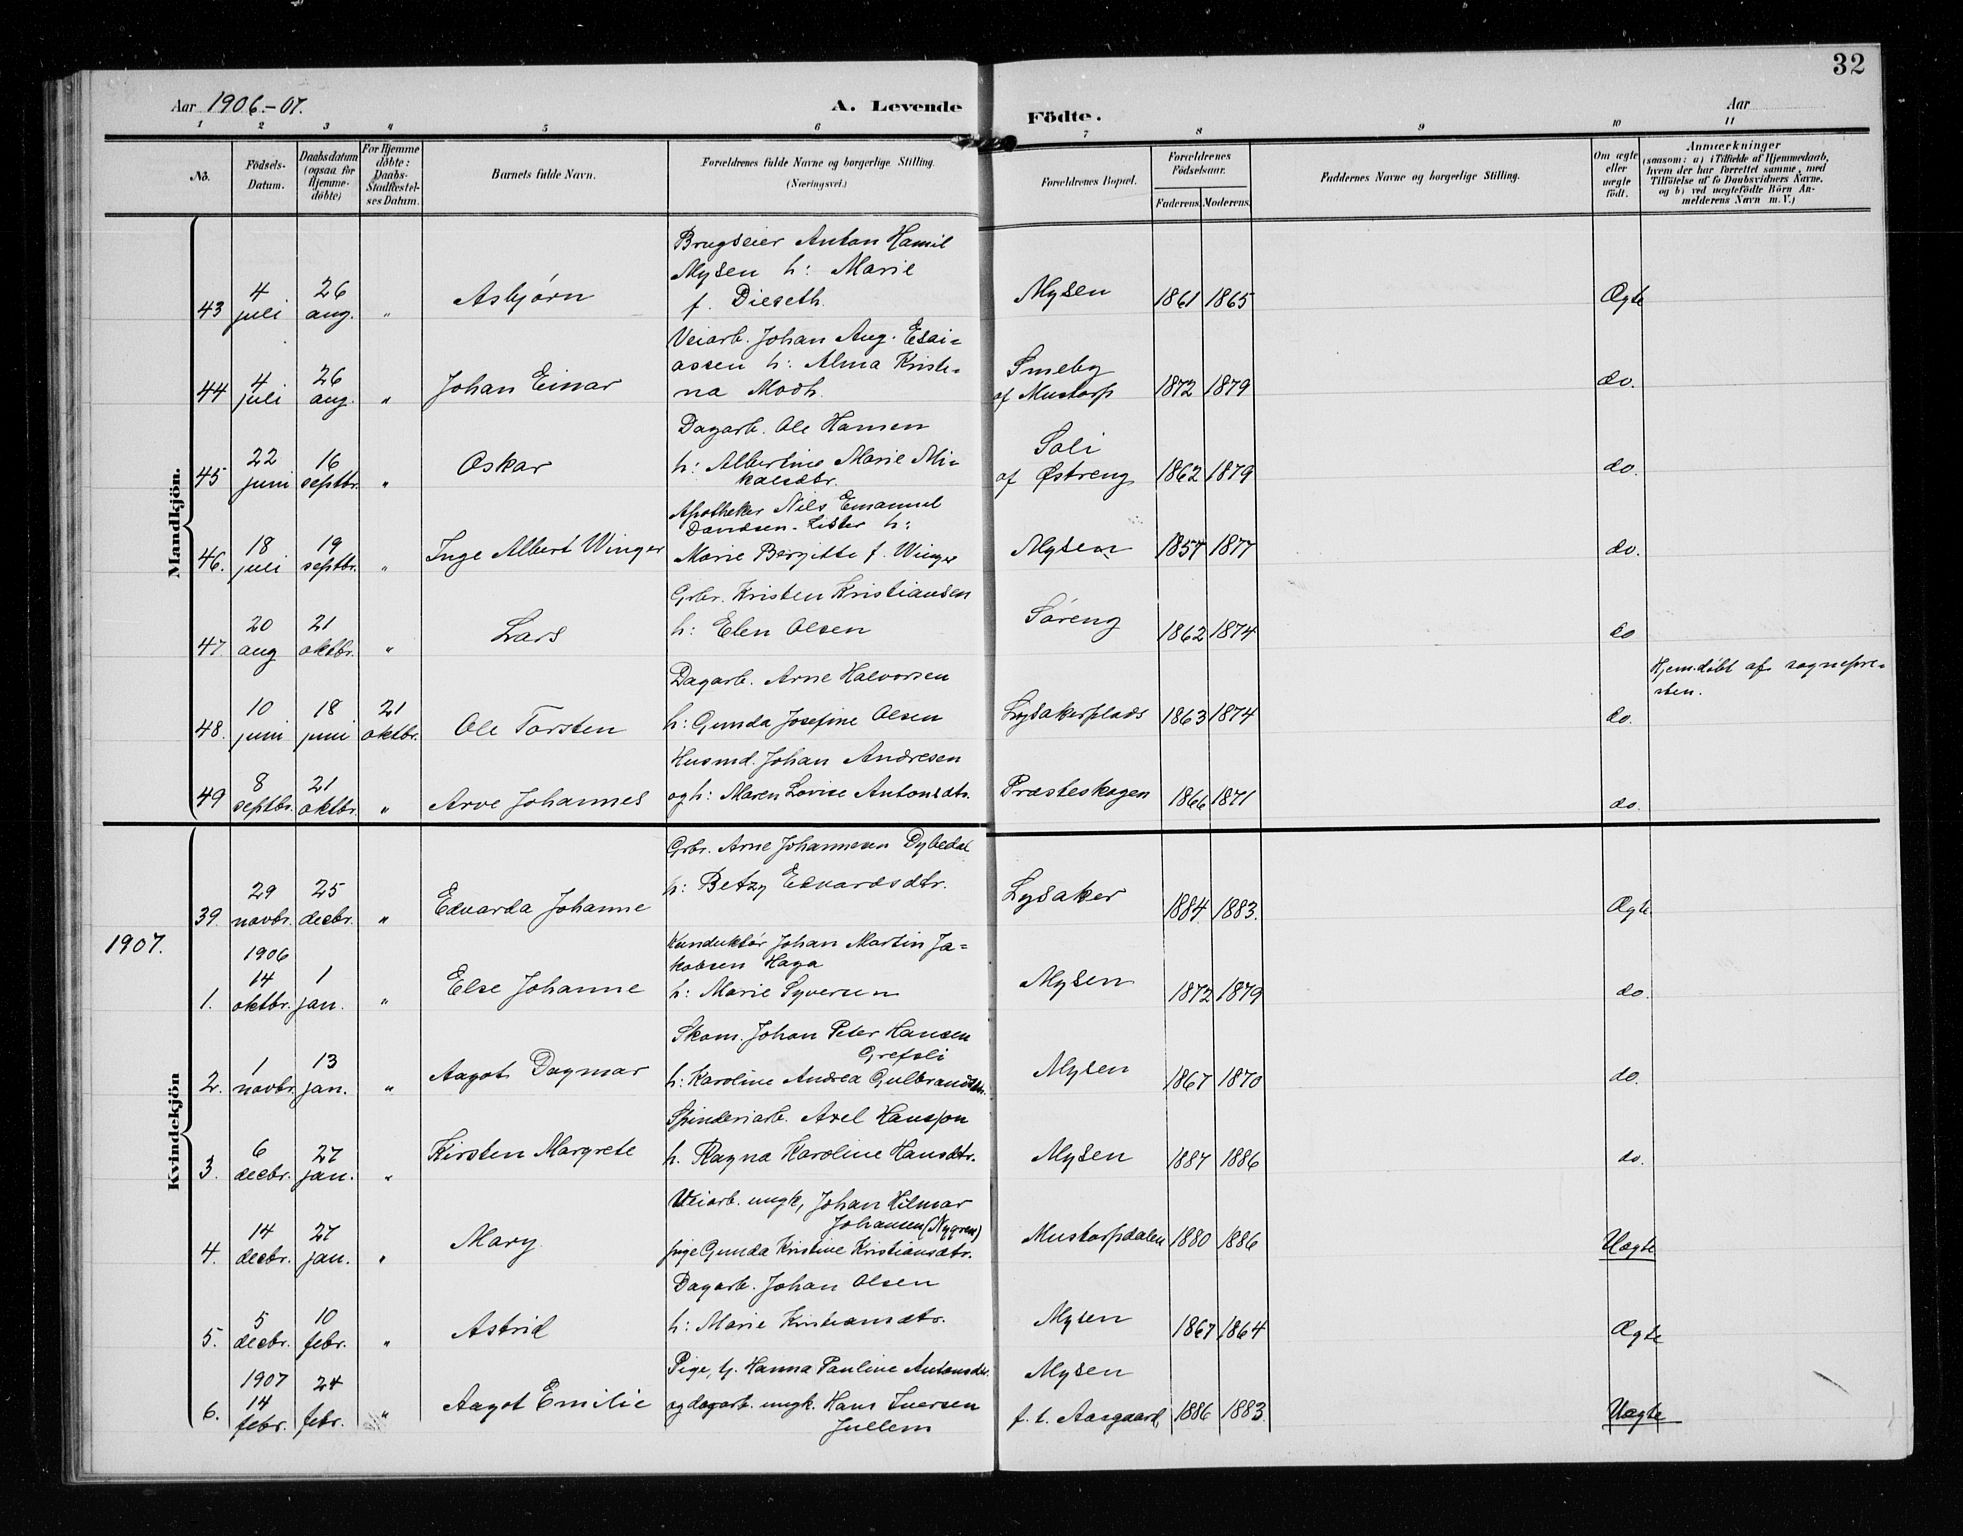 32
Aar 1906.-07. A. Levende Födte. Aar
1 2 3 4 5 6 7 8 9 10 11
No. Födsels-Datum. Daabsdatum (ogsaa for Hjemmedöbte) For Hjemmedöbte: Daabs-Stadfæstelses Datum. Barnets fulde Navn. Forældrenes fulde Navne og borgerlige Stilling. (Næringsvei.) Forældrenes Bopæl. Forældrenes Födselsaar. Faderens. Moderens. Faddernes Navne og borgerlige Stilling. Om ægte eller uægte födt. Anmærkninger (saasom: a) i Tilfælde af Hjemmedaab, hvem der har forrettet samme, med Tilföielse af to Daabsvidners Navne, og b) ved uægtefödte Börn Anmelderens Navn m. V.)
Mandkjön.
Brugseier Anton Hamil
Mysen h: Marie
43 4 juli 26 aug. " Asbjørn f. Dieseth. Mysen 1861 1865 Ægte
Veiarb. Johan Aug. Esai-
assen h: Alma Kristi-
44 4 juli 26 aug. " Johan Einar na Modh. Smeby af Mustorp 1872 1879 do.
Dagarb. Ole Hansen
45 22 juni 16 septbr. " Oskar h: Albertine Marie Mi-
kalsdtr. Soli af Østreng 1862 1879 do.
Apotheker Nils Emanuel
Davidsen-Lister h:
46. 18 juli 19 septbr. " Inge Albert Winger Marie Bergitte f. Winger Mysen 1857 1877 do.
Grbr. Kristen Kristiansen
47. 20 aug 21 oktbr. " Lars h: Elen Olsen Søreng 1862 1874 do
Dagarb. Arne Halvorsen Hjemdøbt af sognepre-
sten.
48. 10 juni 18 juni 21 oktbr. Ole Torsten h: Gunda Josefine Olsen Lysakerplads 1863 1874 do.
Husmd. Johan Andresen
49 8 septbr. 21 oktbr. " Arve Johannes og h: Maren Lovise Antonsdtr. Præsteskogen 1866 1871 do.
Kvindekjön
Grbr. Arne Johannesen Dybedal
39. 29 novbr. 25 decbr. " Edvarda Johanne h: Betzy Edvardsdtr. Lysaker 1884. 1883. Ægte.
1907.
Konduktør Johan Martin Ja-
kobsen Haga
1. 1906 14 oktbr. 1 jan. " Else Johanne h: Marie Syversen Mysen 1872 1879 do.
Skom. Johan Peter Hansen
Grefsli
2. 1 novbr. 13 jan. " Aagot Dagmar h: Karoline Andrea Gulbrandsdtr. Mysen 1867 1870 do.
Spinderiarb. Axel Hansson
3. 6 decbr. 27 jan. " Kirsten Margrete h. Ragna Karoline Hansdtr. Mysen 1887 1886 do.
Veiarb. ungk, Johan Hilmar
Johansen (Nygren)
4. 14 decbr. 27 jan. " Mary pige Gunda Kristine Kristiansdtr. Mustorpdalen 1880 1886 Uægte
Dagarb. Johan Olsen
5. 5 decbr. 10 febr. " Astrid h: Marie Kristiansdtr. Mysen 1867 1864 Ægte
Pige, Hanna Pauline Antonsdtr. Mysen
6. 1907 14 febr. 24 febr. " Aagot Emilie og dagarb. ungk. Hans Iversen
Jullem f. t. Aasgaard 1886 1883. Uægte